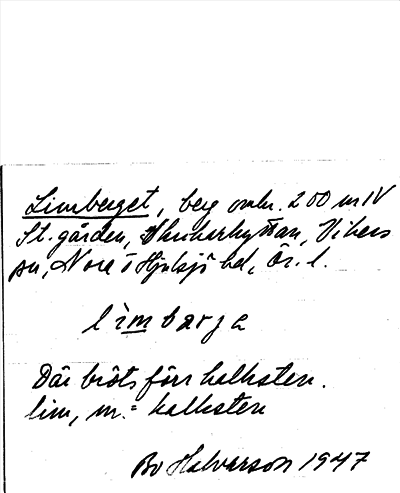 Limberget, berg omkr. 200 m NV
St. gården, Skrikarhyttan, Vikers
sn, Nora o Hjulsjö bd, Ör. l.
limbarge
Där bröts förr kalksten.
lim, m. = kalksten
Bo Halvarson 1947